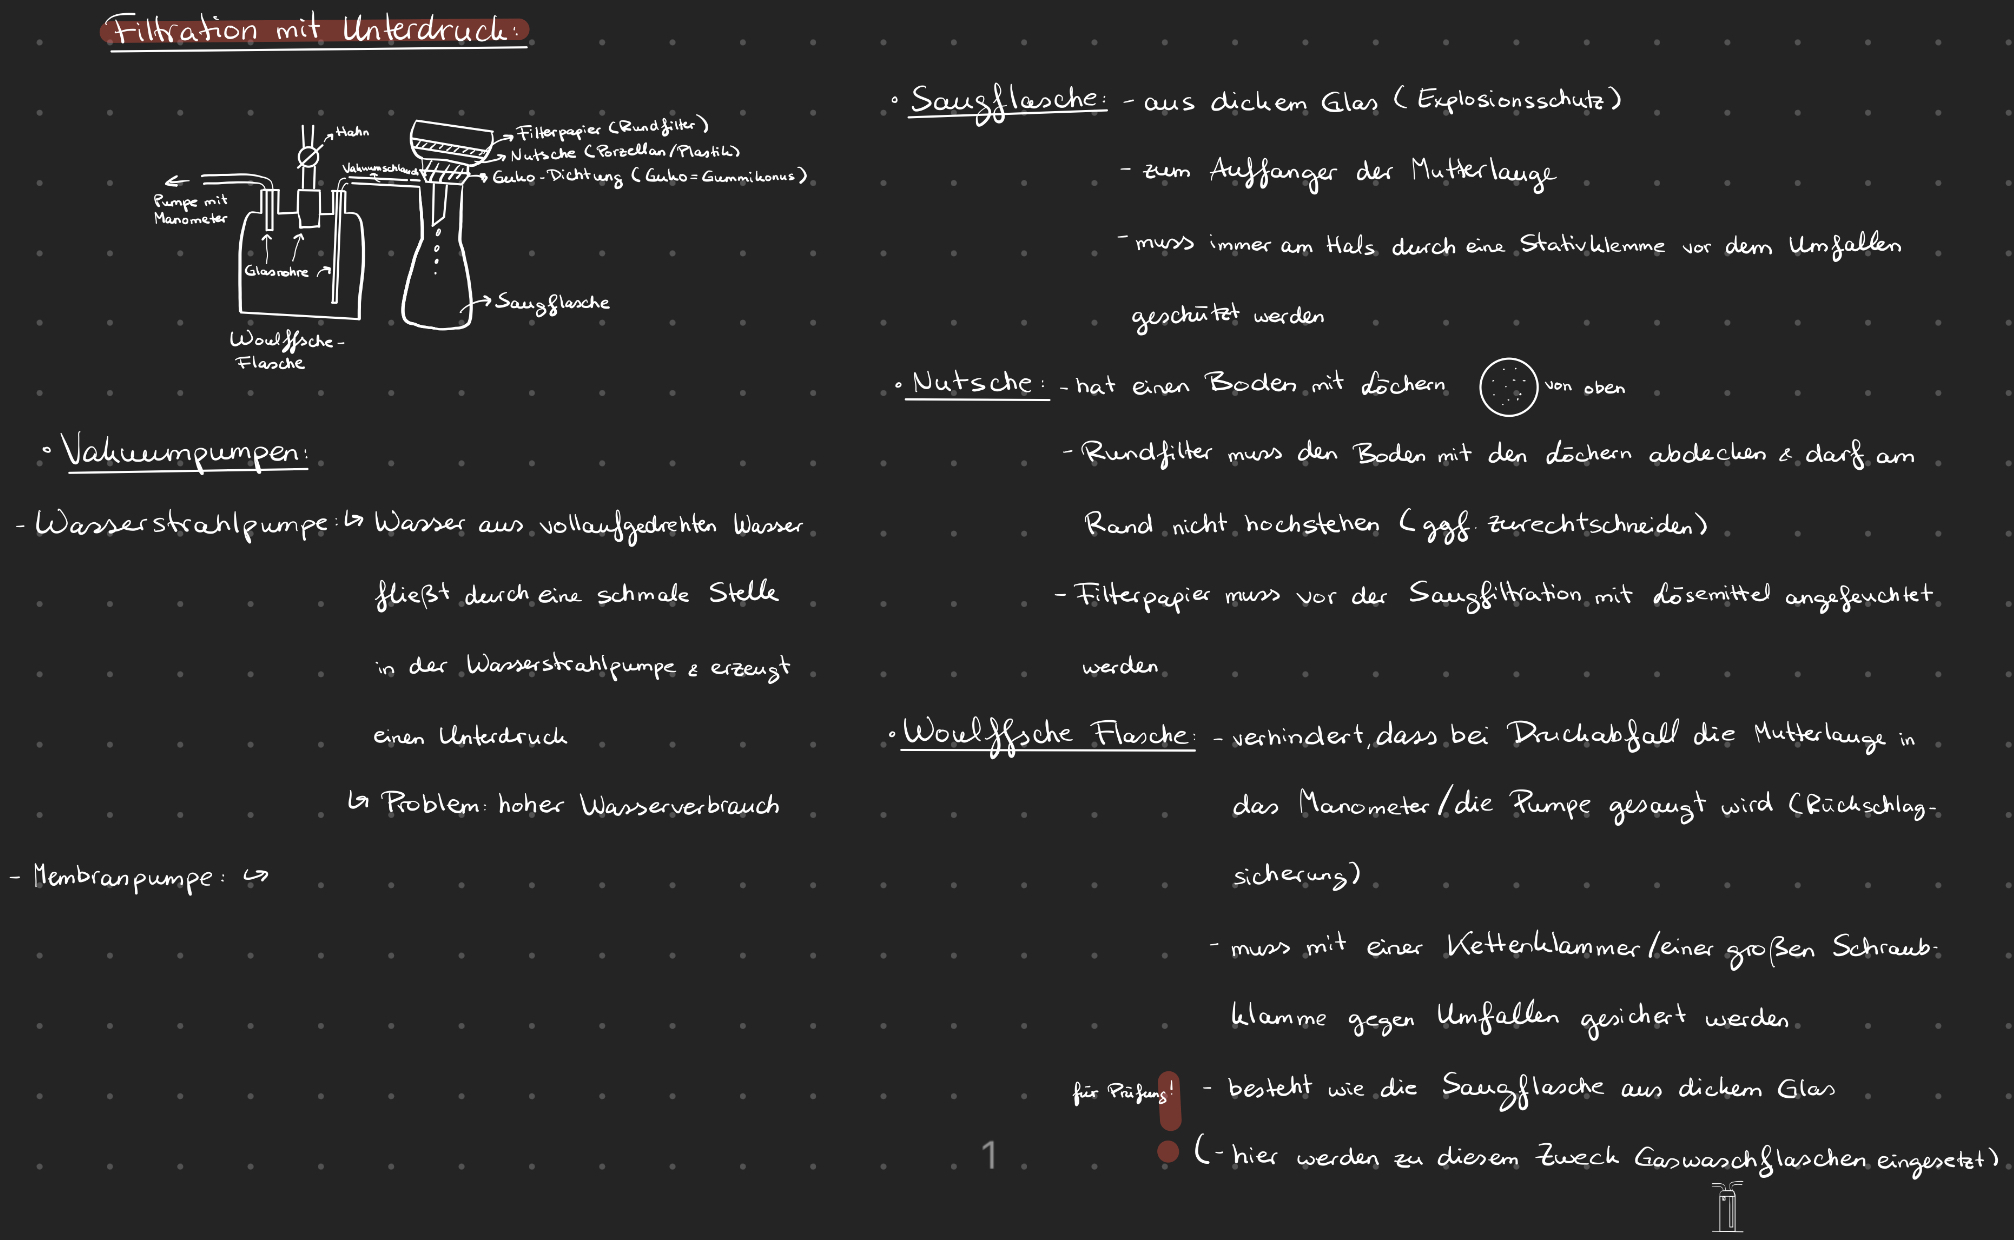 Filtration mit Unterdruck:
Hahn
Filterpapier (Rundfilter)
Nutsche (Porzellan/Plastik)
Vakuumschlauch
Guko-Dichtung (Guko = Gummikonus)
Pumpe mit
Manometer
Glasrohre
Saugflasche
Woulffsche-
Flasche
• Vakuumpumpen:
- Wasserstrahlpumpe: ↳ Wasser aus vollaufgedrehten Wasser
fließt durch eine schmale Stelle
in der Wasserstrahlpumpe & erzeugt
einen Unterdruck
↳ Problem: hoher Wasserverbrauch
- Membranpumpe: ↪
• Saugflasche: - aus dickem Glas (Explosionsschutz)
- zum Auffanger der Mutterlauge
- muss immer am Hals durch eine Stativklemme vor dem Umfallen
geschützt werden
• Nutsche: - hat einen Boden mit Löchern von oben
- Rundfilter muss den Boden mit den Löchern abdecken & darf am
Rand nicht hochstehen (ggf. zurechtschneiden)
- Filterpapier muss vor der Saugfiltration mit Lösemittel angefeuchtet
werden
• Woulffsche Flasche: - verhindert, dass bei Druckabfall die Mutterlauge in
das Manometer/die Pumpe gesaugt wird (Rückschlag-
sicherung)
- muss mit einer Kettenklammer/einer großen Schraub-
klamme gegen Umfallen gesichert werden
für Prüfung! - besteht wie die Saugflasche aus dickem Glas
(- hier werden zu diesem Zweck Gaswaschflaschen eingesetzt)
1